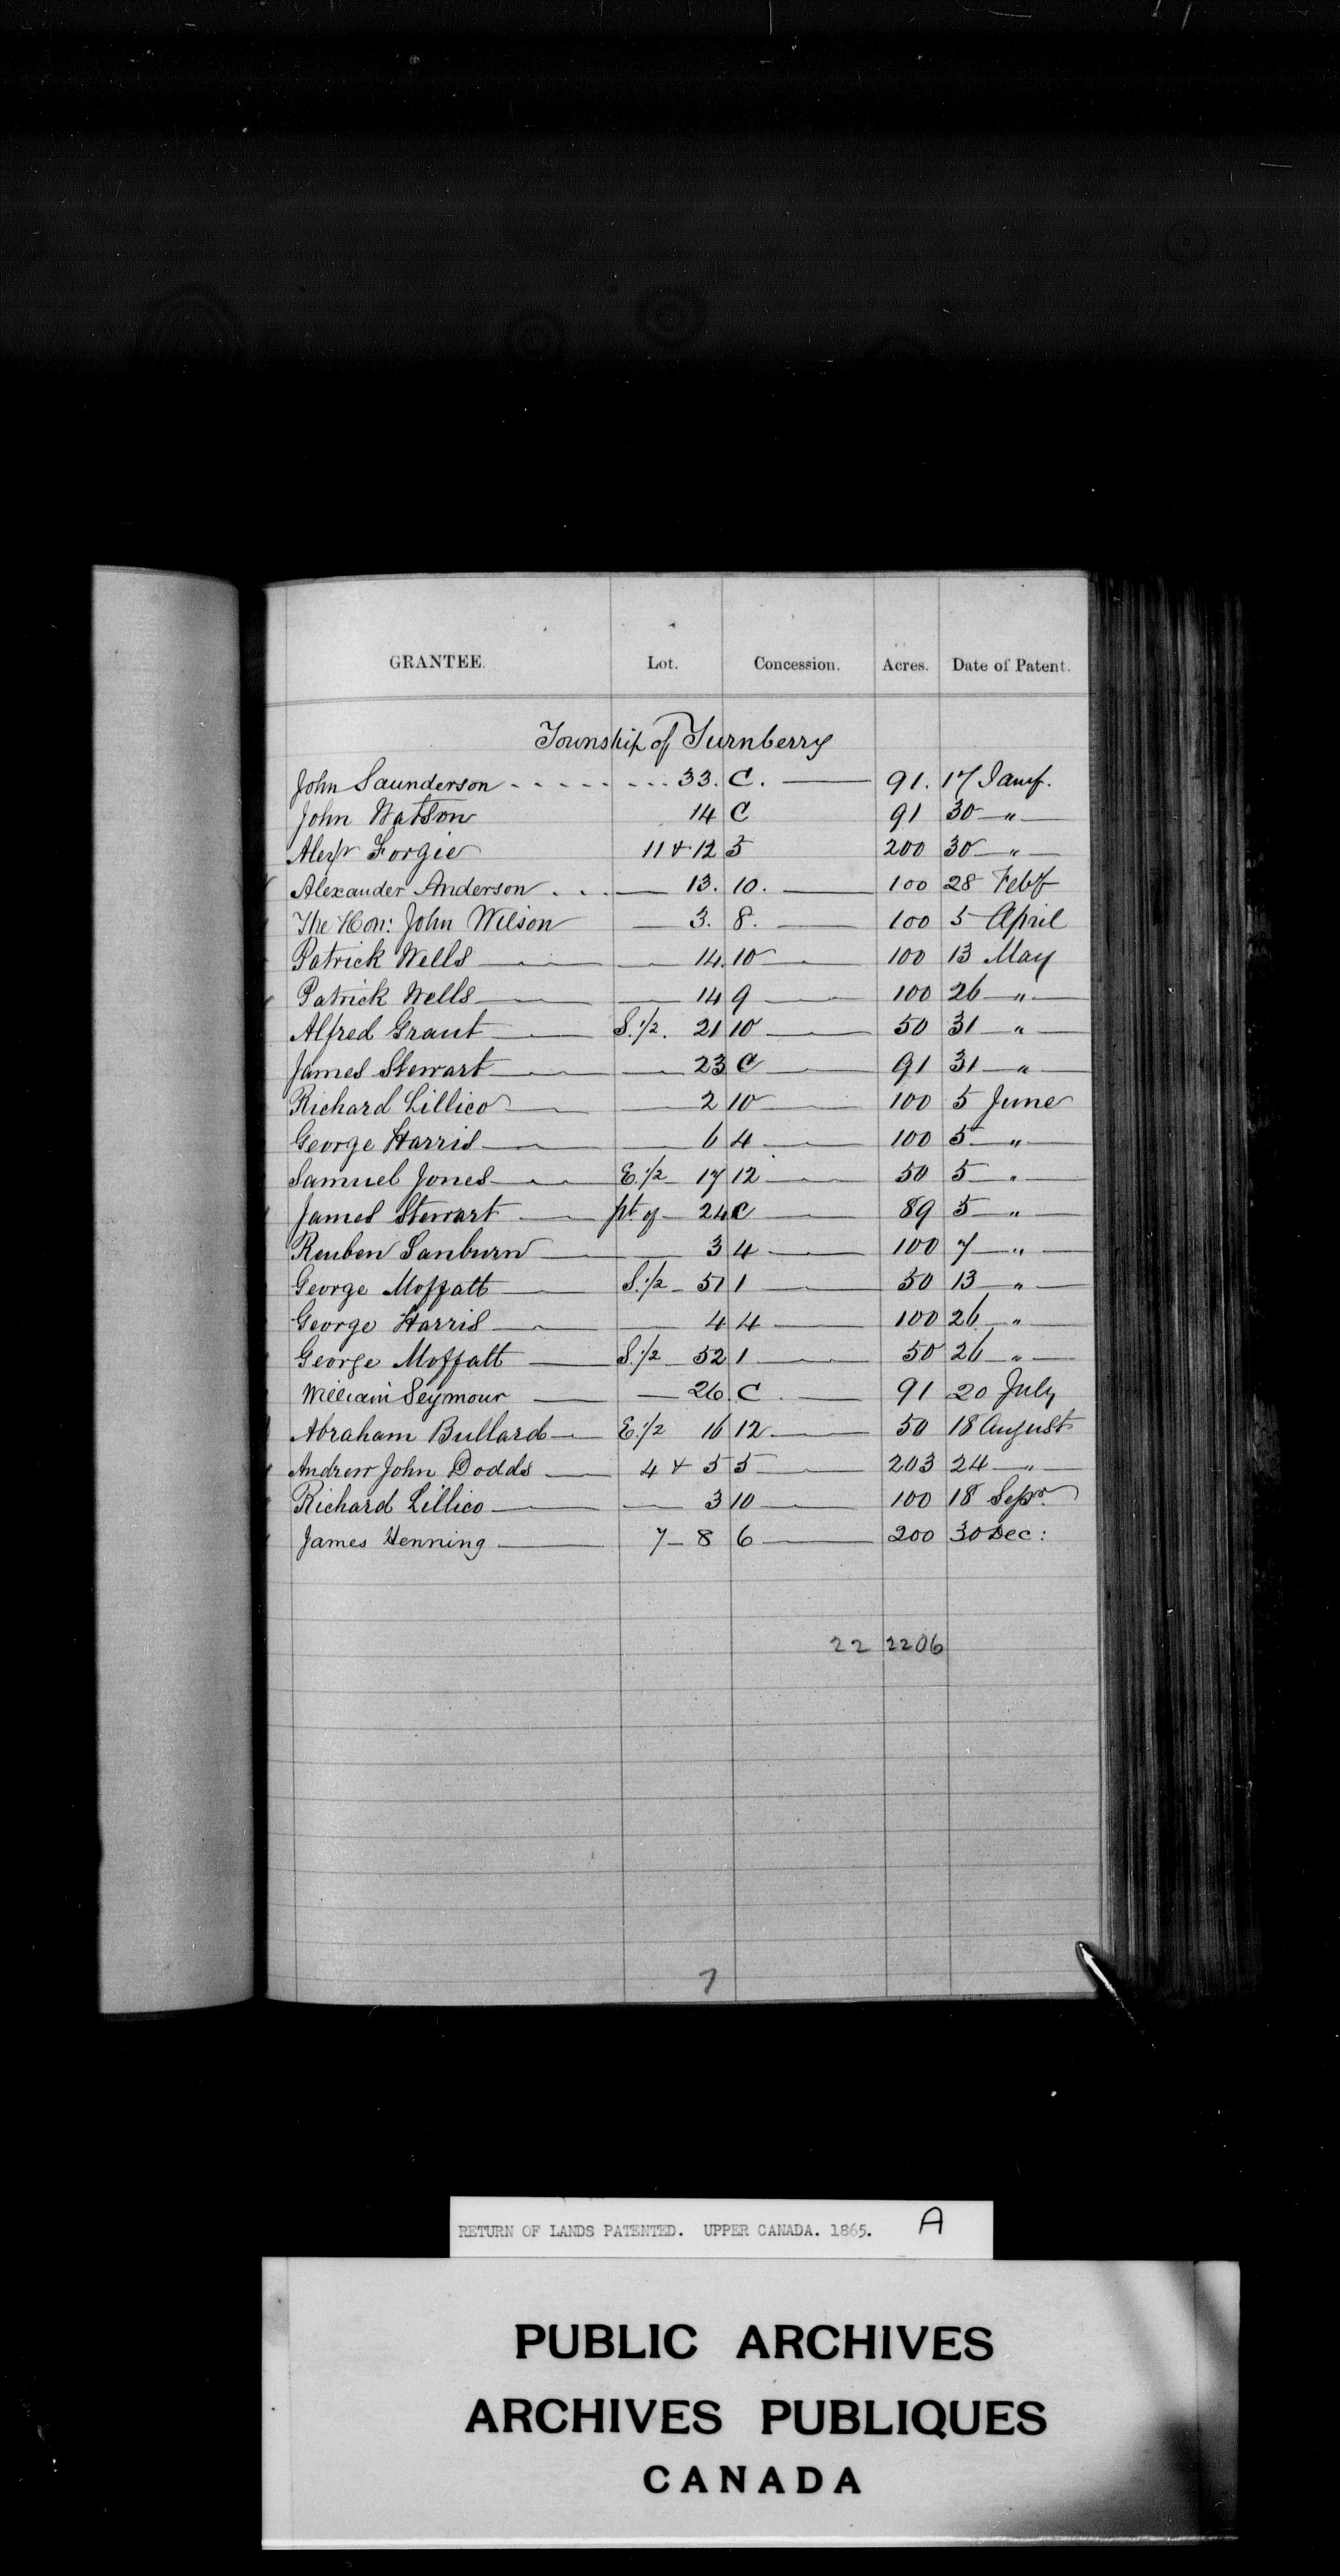 GRANTEE. Lot. Concession. Acres. Date of Patent.
Township of Turnberry
John Saunderson 33. C. 91. 17 Jany.
John Watson 14 C 91 30 "
Alexr Forgie 11 & 12 5 200 30 "
Alexander Anderson 13. 10. 100 28 Feby
The Hon: John Wilson 3. 8. 100 5 April
Patrick Wells 14. 10 100 13 May
Patrick Wells 14 9 100 26 "
Alfred Grant S. 1/2. 21 10 50 31 "
James Stewart 23 C 91 31 "
Richard Lillico 2 10 100 5 June
George Harris 6 4 100 5 "
Samuel Jones E. 1/2 17 12 50 5 "
James Stewart pt of 24 C 89 5 "
Reuben Sanburn 3 4 100 7 "
George Moffatt S. 1/2 51 1 50 13 "
George Harris 4 4 100 26 "
George Moffatt S. 1/2 52 1 50 26 "
William Seymour 26. C. 91 20 July
Abraham Bullard E. 1/2 16 12 50 18 August
Andrew John Dodds 4 & 5 5 203 24 "
Richard Lillico 3 10 100 18 Sepr.
James Henning 7 - 8 6 200 30 Dec:
22 2206
7
RETURN OF LANDS PATENTED. UPPER CANADA. 1865. A
PUBLIC ARCHIVES
ARCHIVES PUBLIQUES
CANADA